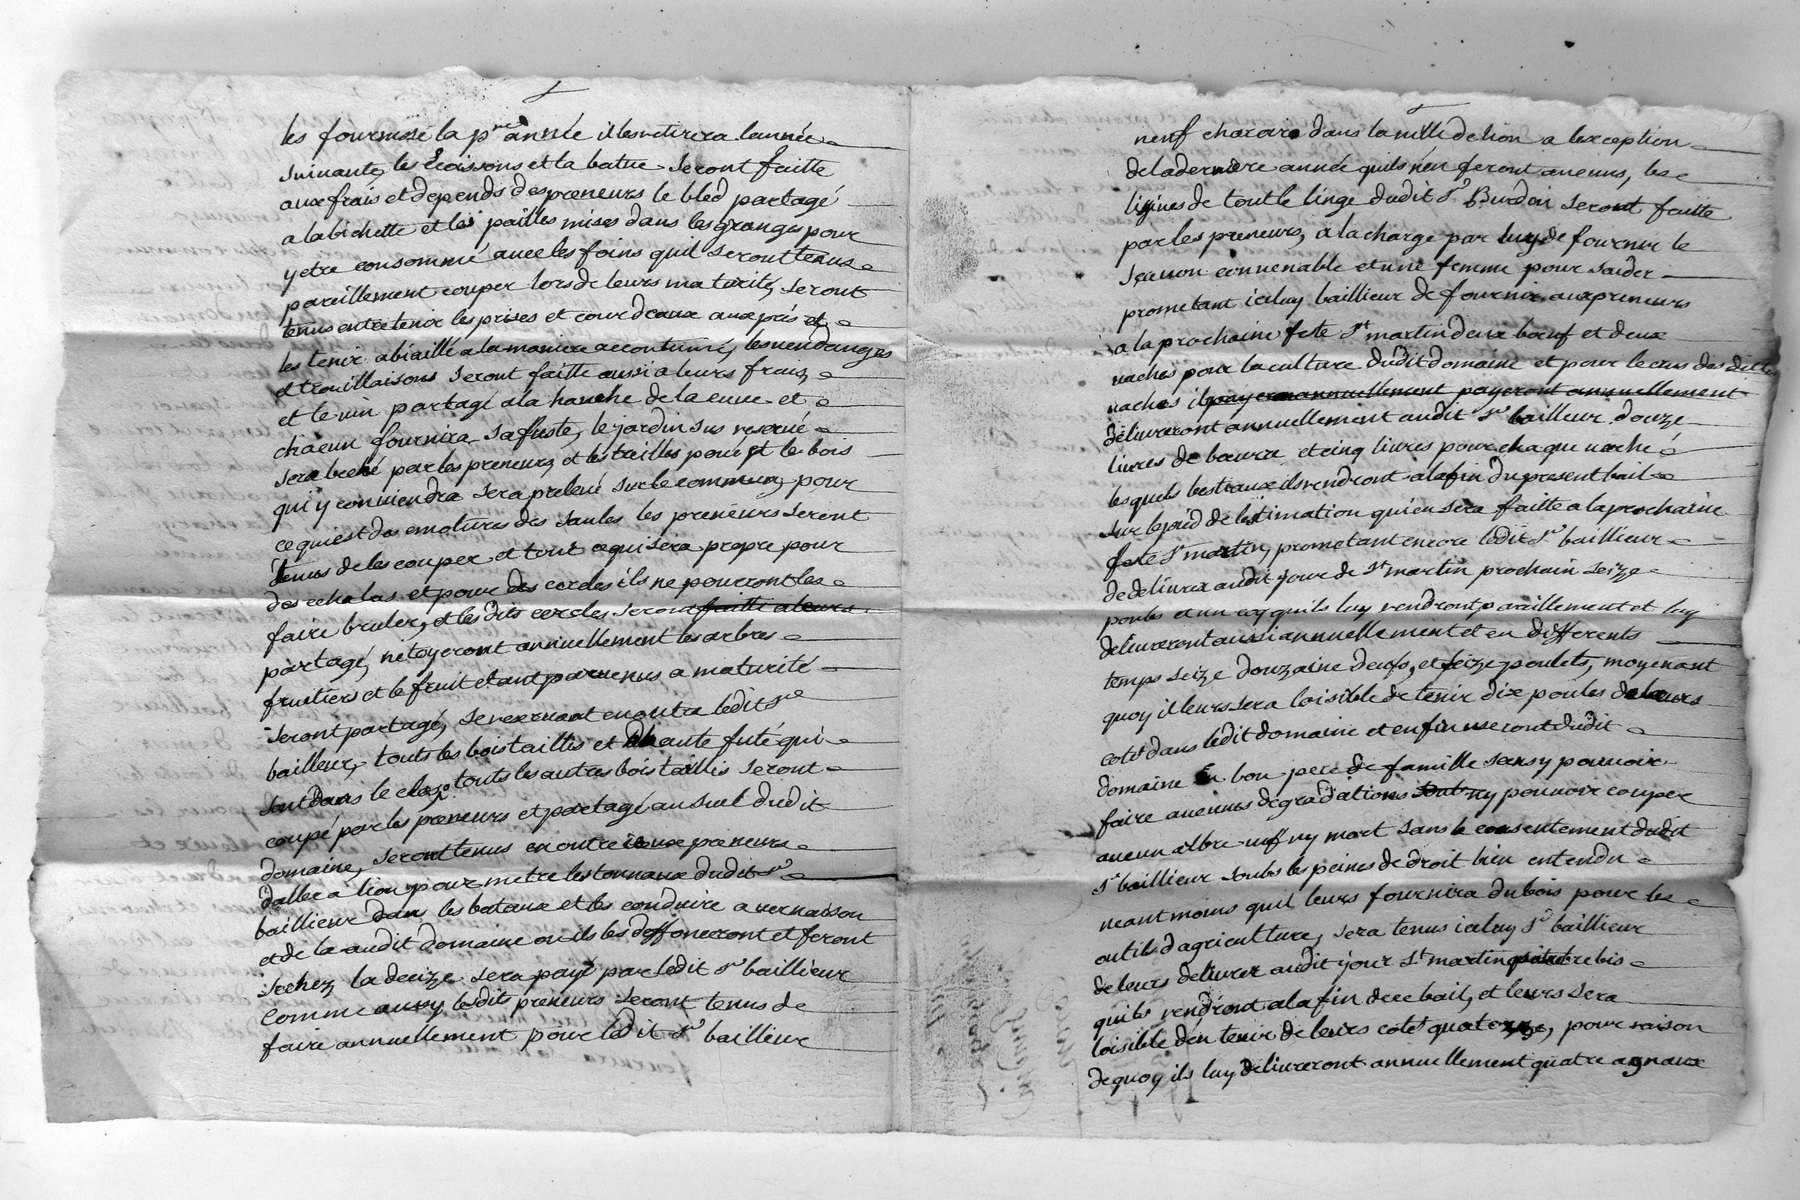 les fournisse la p.re année il les retirera lannée
suivante, les Ecoissons et la batue seront faitte
aux frais et depends des preneurs le bled partagé
a la bichette et les pailles mises dans les granges pour
y etre consommé avec les foins quil seront tenus
pareillement couper lors de leurs maturité, seront
tenus entretenir les prises et cour deaux aux prés et
les tenir abiaillé a la maniere accoutumé, les vendanges
et trouillaisons seront faitte aussi a leurs fraix
et le vin partagé a la hanche de la cuve et
chacun fournira sa fuste, le jardin sus reservé
sera beché par les preneurs et les treilles pour et le bois
qui y conviendra sera prelevé sur le commun, pour
ce qui est des emotures des saules les preneurs seront
tenus de les couper et tout ce qui sera propre pour
des echalas et pour des cercles ils ne pourront les
faire bruler, et lesdits cercles seront faitte a leurs
partagé, netoyeront annuellement les arbres
fruitiers et le fruit etant parvenus a maturité
seront partagé, se reservant en outre ledit Sr
bailleur, touts les bois taillis et de haute futé qui
sont dans le clos, touts les autres bois taillis seront
coupé par les preneurs et partagé au suel dudit
domaine, seront tenus en outre iceux preneurs
daller a lion pour metre les tonnaux dudit Sr
baillieur dans les bataux et les conduire a vernaison
et de la audit domaine ou ils les deffonceront et feront
sechez la decize sera payé par ledit Sr baillieur
comme aussy lesdits preneurs seront tenus de
faire annuellement pour ledit Sr bailleur
neuf chararois dans la ville de lion a lexception
de la derniere année quils nen feront aucuns, les
lisives de tout le linge dudit Sr Burdin seront faitte
par les preneurs, a la charge par luy de fournir le
sçavon convenable et une femme pour saider
prometant iceluy baillieur de fournir aux preneurs
a la prochaine feste St martin deux bœuf et deux
vaches pour la culture dudit domaine et pour le cens des dittes
vaches il payeront annuellement payeront annuellement
délivreront annuellement audit Sr bailleur douze
livres de beurre et cinq livres pour chaque vache
lesquels bestiaux ils rendront a la fin du present bail
sur le pied de lestimation qui en sera faitte a la prochaine
feste St martin, prometant encore ledit Sr baillieur
de delivrer audit jour de St martin prochain seize
poules et un cocq quils luy rendront pareillement et luy
delivreront aussi annuellement et en differents
temps seize douzaine deufs, et seize poulets, moyenant
quoy il leurs sera loisible de tenir dix poules de leurs
coté dans ledit domaine et enfin useront dudit
domaine en bon pere de famille sans y pouvoir
faire aucunes degradations ny pouvoir couper
aucun arbre vif ny mort sans le consentement dudit
Sr baillieur soubs les peines de droit bien entendu
neantmoins quil leurs fournira du bois pour les
outils dagriculture, sera tenus iceluy Sr baillieur
de leurs delivrer audit jour St martin quatre bis
quils rendront a la fin de ce bail, et leurs sera
loisible den tenir de leurs coté quatorze, pour raison
de quoy ils luy délivreront annuellement quatre agnaux